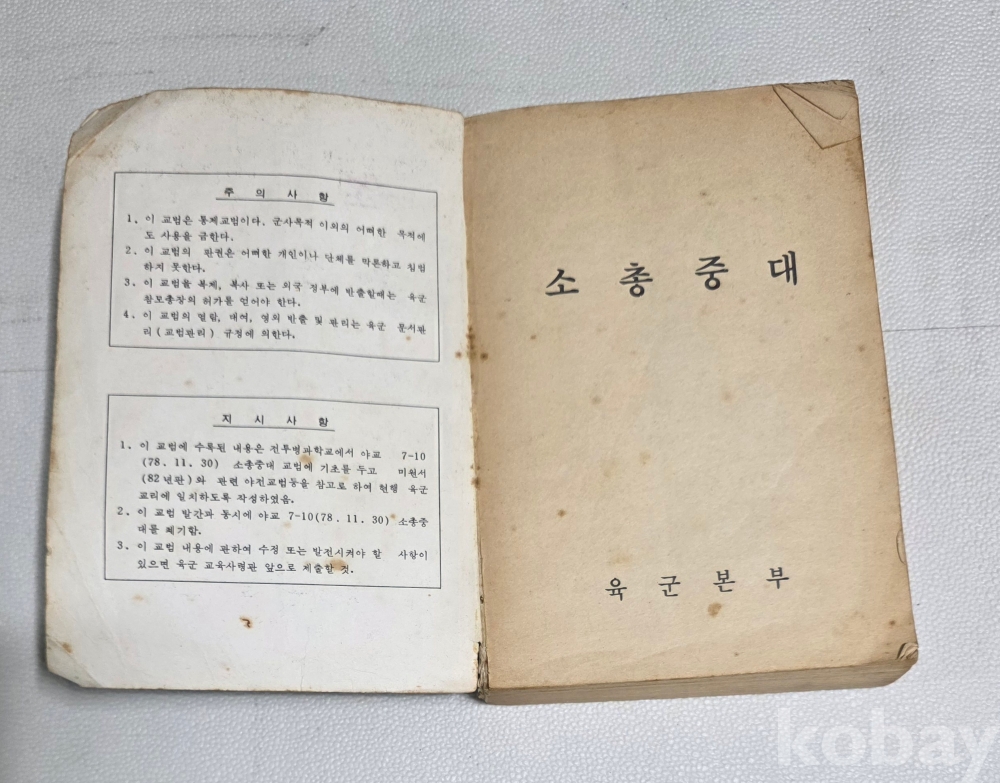 주 의 사 항
1. 이 교범은 통제교범이다. 군사목적 이외의 어떠한 목적에
도 사용을 금한다.
2. 이 교범의 판권은 어떠한 개인이나 단체를 막론하고 침범
하지 못한다.
3. 이 교범을 복제, 복사 또는 외국 정부에 반출할때는 육군
참모총장의 허가를 얻어야 한다.
4. 이 교범의 열람, 대여, 영외 반출 및 관리는 육군 문서관
리(교범관리) 규정에 의한다.
지 시 사 항
1. 이 교범에 수록된 내용은 전투병과학교에서 야교 7-10
(78. 11. 30) 소총중대 교범에 기초를 두고 미원서
(82년판)와 관련 야전교범등을 참고로 하여 현행 육군
교리에 일치하도록 작성하였음.
2. 이 교범 발간과 동시에 야교 7-10(78. 11. 30) 소총중
대를 폐기함.
3. 이 교범 내용에 관하여 수정 또는 발전시켜야 할 사항이
있으면 육군 교육사령관 앞으로 제출할 것.
소 총 중 대
육 군 본 부
kobay